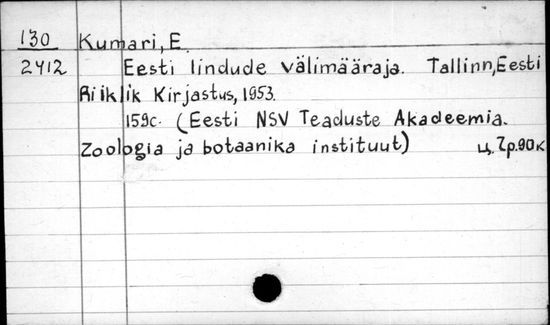 130 Kumari, E.
2412 Eesti lindude välimääraja. Tallinn, Eesti
Riiklik Kirjastus, 1953.
159c. (Eesti NSV Teaduste Akadeemia.
Zooloogia ja botaanika instituut) ц. 7р.90к